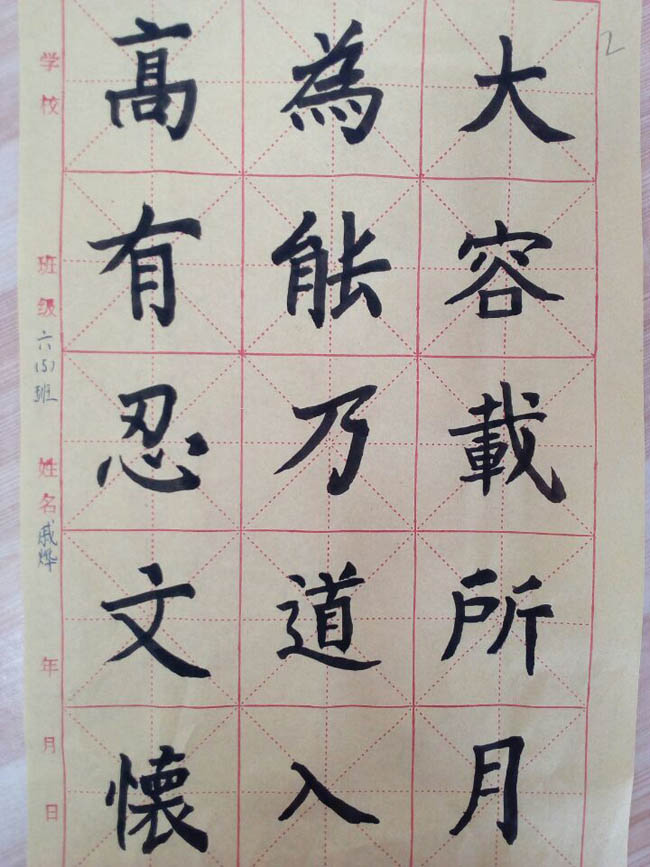 大容載所月
為能乃道入
髙有忍文懷
学校
班级六(5)班
姓名戚烨
年月日
2